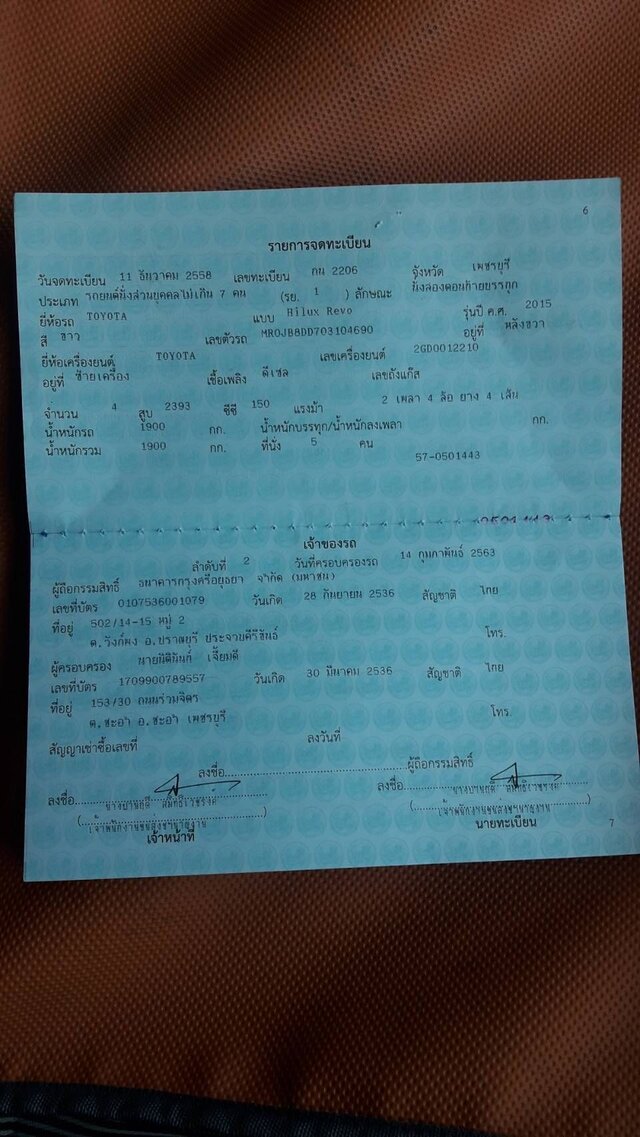 6
รายการจดทะเบียน
วันจดทะเบียน 11 ธันวาคม 2558 เลขทะเบียน กน 2206 จังหวัด เพชรบุรี
ประเภท รถยนต์นั่งส่วนบุคคลไม่เกิน 7 คน (รย. 1 ) ลักษณะ นั่งสองตอนท้ายบรรทุก
ยี่ห้อรถ TOYOTA แบบ Hilux Revo รุ่นปี ค.ศ. 2015
สี ขาว เลขตัวรถ MR0JB8DD703104690 อยู่ที่ หลังขวา
ยี่ห้อเครื่องยนต์ TOYOTA เลขเครื่องยนต์ 2GD0012210
อยู่ที่ ซ้ายเครื่อง เชื้อเพลิง ดีเซล เลขถังแก๊ส
จำนวน 4 สูบ 2393 ซีซี 150 แรงม้า 2 เพลา 4 ล้อ ยาง 4 เส้น
น้ำหนักรถ 1900 กก. น้ำหนักบรรทุก/น้ำหนักลงเพลา กก.
น้ำหนักรวม 1900 กก. ที่นั่ง 5 คน
57-0501443
เจ้าของรถ
ลำดับที่ 2 วันที่ครอบครองรถ 14 กุมภาพันธ์ 2563
ผู้ถือกรรมสิทธิ์ ธนาคารกรุงศรีอยุธยา จำกัด (มหาชน)
เลขที่บัตร 0107536001079 วันเกิด 28 กันยายน 2536 สัญชาติ ไทย
ที่อยู่ 502/14-15 หมู่ 2
ต.วังก์พง อ.ปราณบุรี ประจวบคีรีขันธ์ โทร.
ผู้ครอบครอง นายนิตินันท์ เจี๊ยมดี
เลขที่บัตร 1709900789557 วันเกิด 30 มีนาคม 2536 สัญชาติ ไทย
ที่อยู่ 153/30 ถนนร่วมจิตร
ต.ชะอำ อ.ชะอำ เพชรบุรี โทร.
สัญญาเช่าซื้อเลขที่ ลงวันที่
ลงชื่อ ผู้ถือกรรมสิทธิ์
ลงชื่อ ลงชื่อ
เจ้าหน้าที่ นายทะเบียน
7